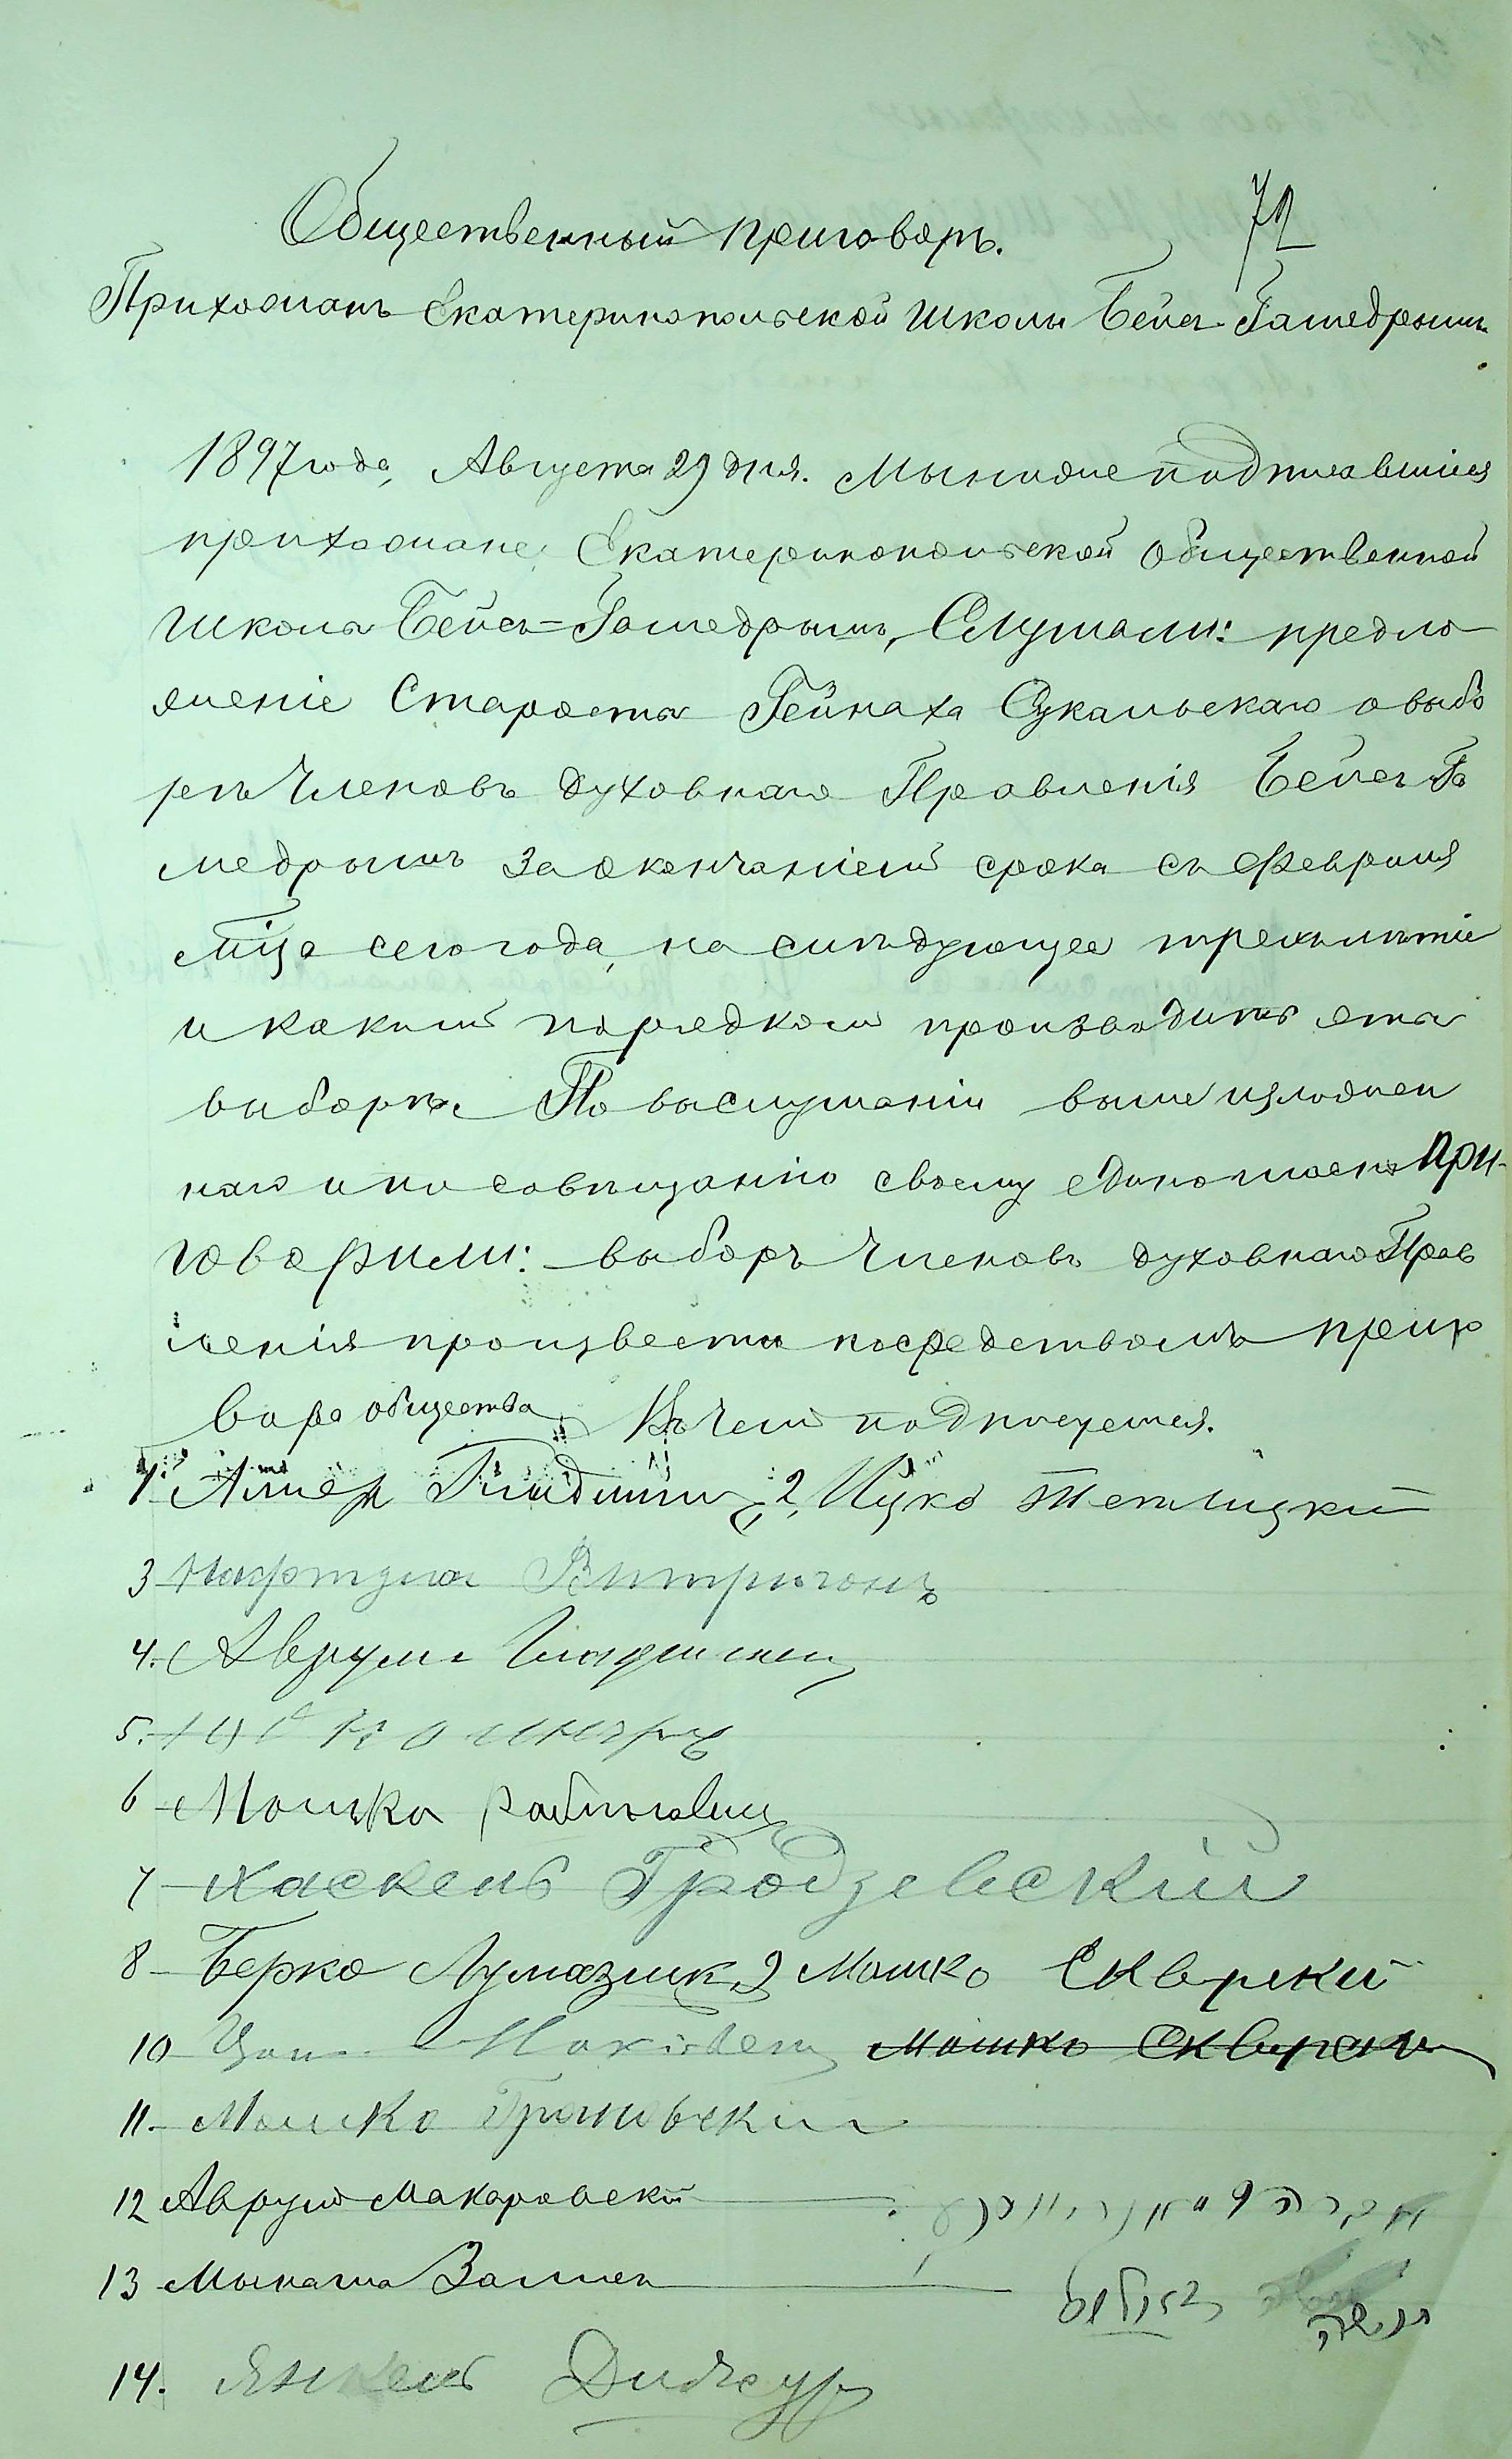 72
Общественный приговоръ.
Прихожанъ Екатеринопольской школы Бейсъ-Гамедрышъ
1897 года, Августа 29 дня. Мы нижеподписавшіеся
прихожане Екатеринопольской общественной
школы Бейсъ=Гамедрышъ, Слушали: предло
женіе Старосты Гейнаха Сукальскаго о выбо
рѣ Членовъ духовнаго Правленія Бейсъ Га
медрышъ за окончаніемъ срока съ Февраля
м̃ца сего года, на слѣдующее трехлѣтіе
и какимъ порядкомъ производить эти
выборы. По выслушаніи вышеизложен
наго и по совѣщанію своему единогласно При-
говорили: выборъ Членовъ духовнаго Прав
ленія произвести посредствомъ приго
вора общества въ чемъ подписуемся.
1. Лейзер 2, Ицко Теплицкий
3 Нафтула Витриченъ
4. Аврумъ
5.
6 Мошко Рабинович
7 Хаскель Гродзевский
8 Берко 9 Мошко Сквирский
10 Мошко Сквирски
11. Мошко Грановский
12 Аврумъ Макаровский
13 Мынаша Залмен
מנשה
14. Янкель